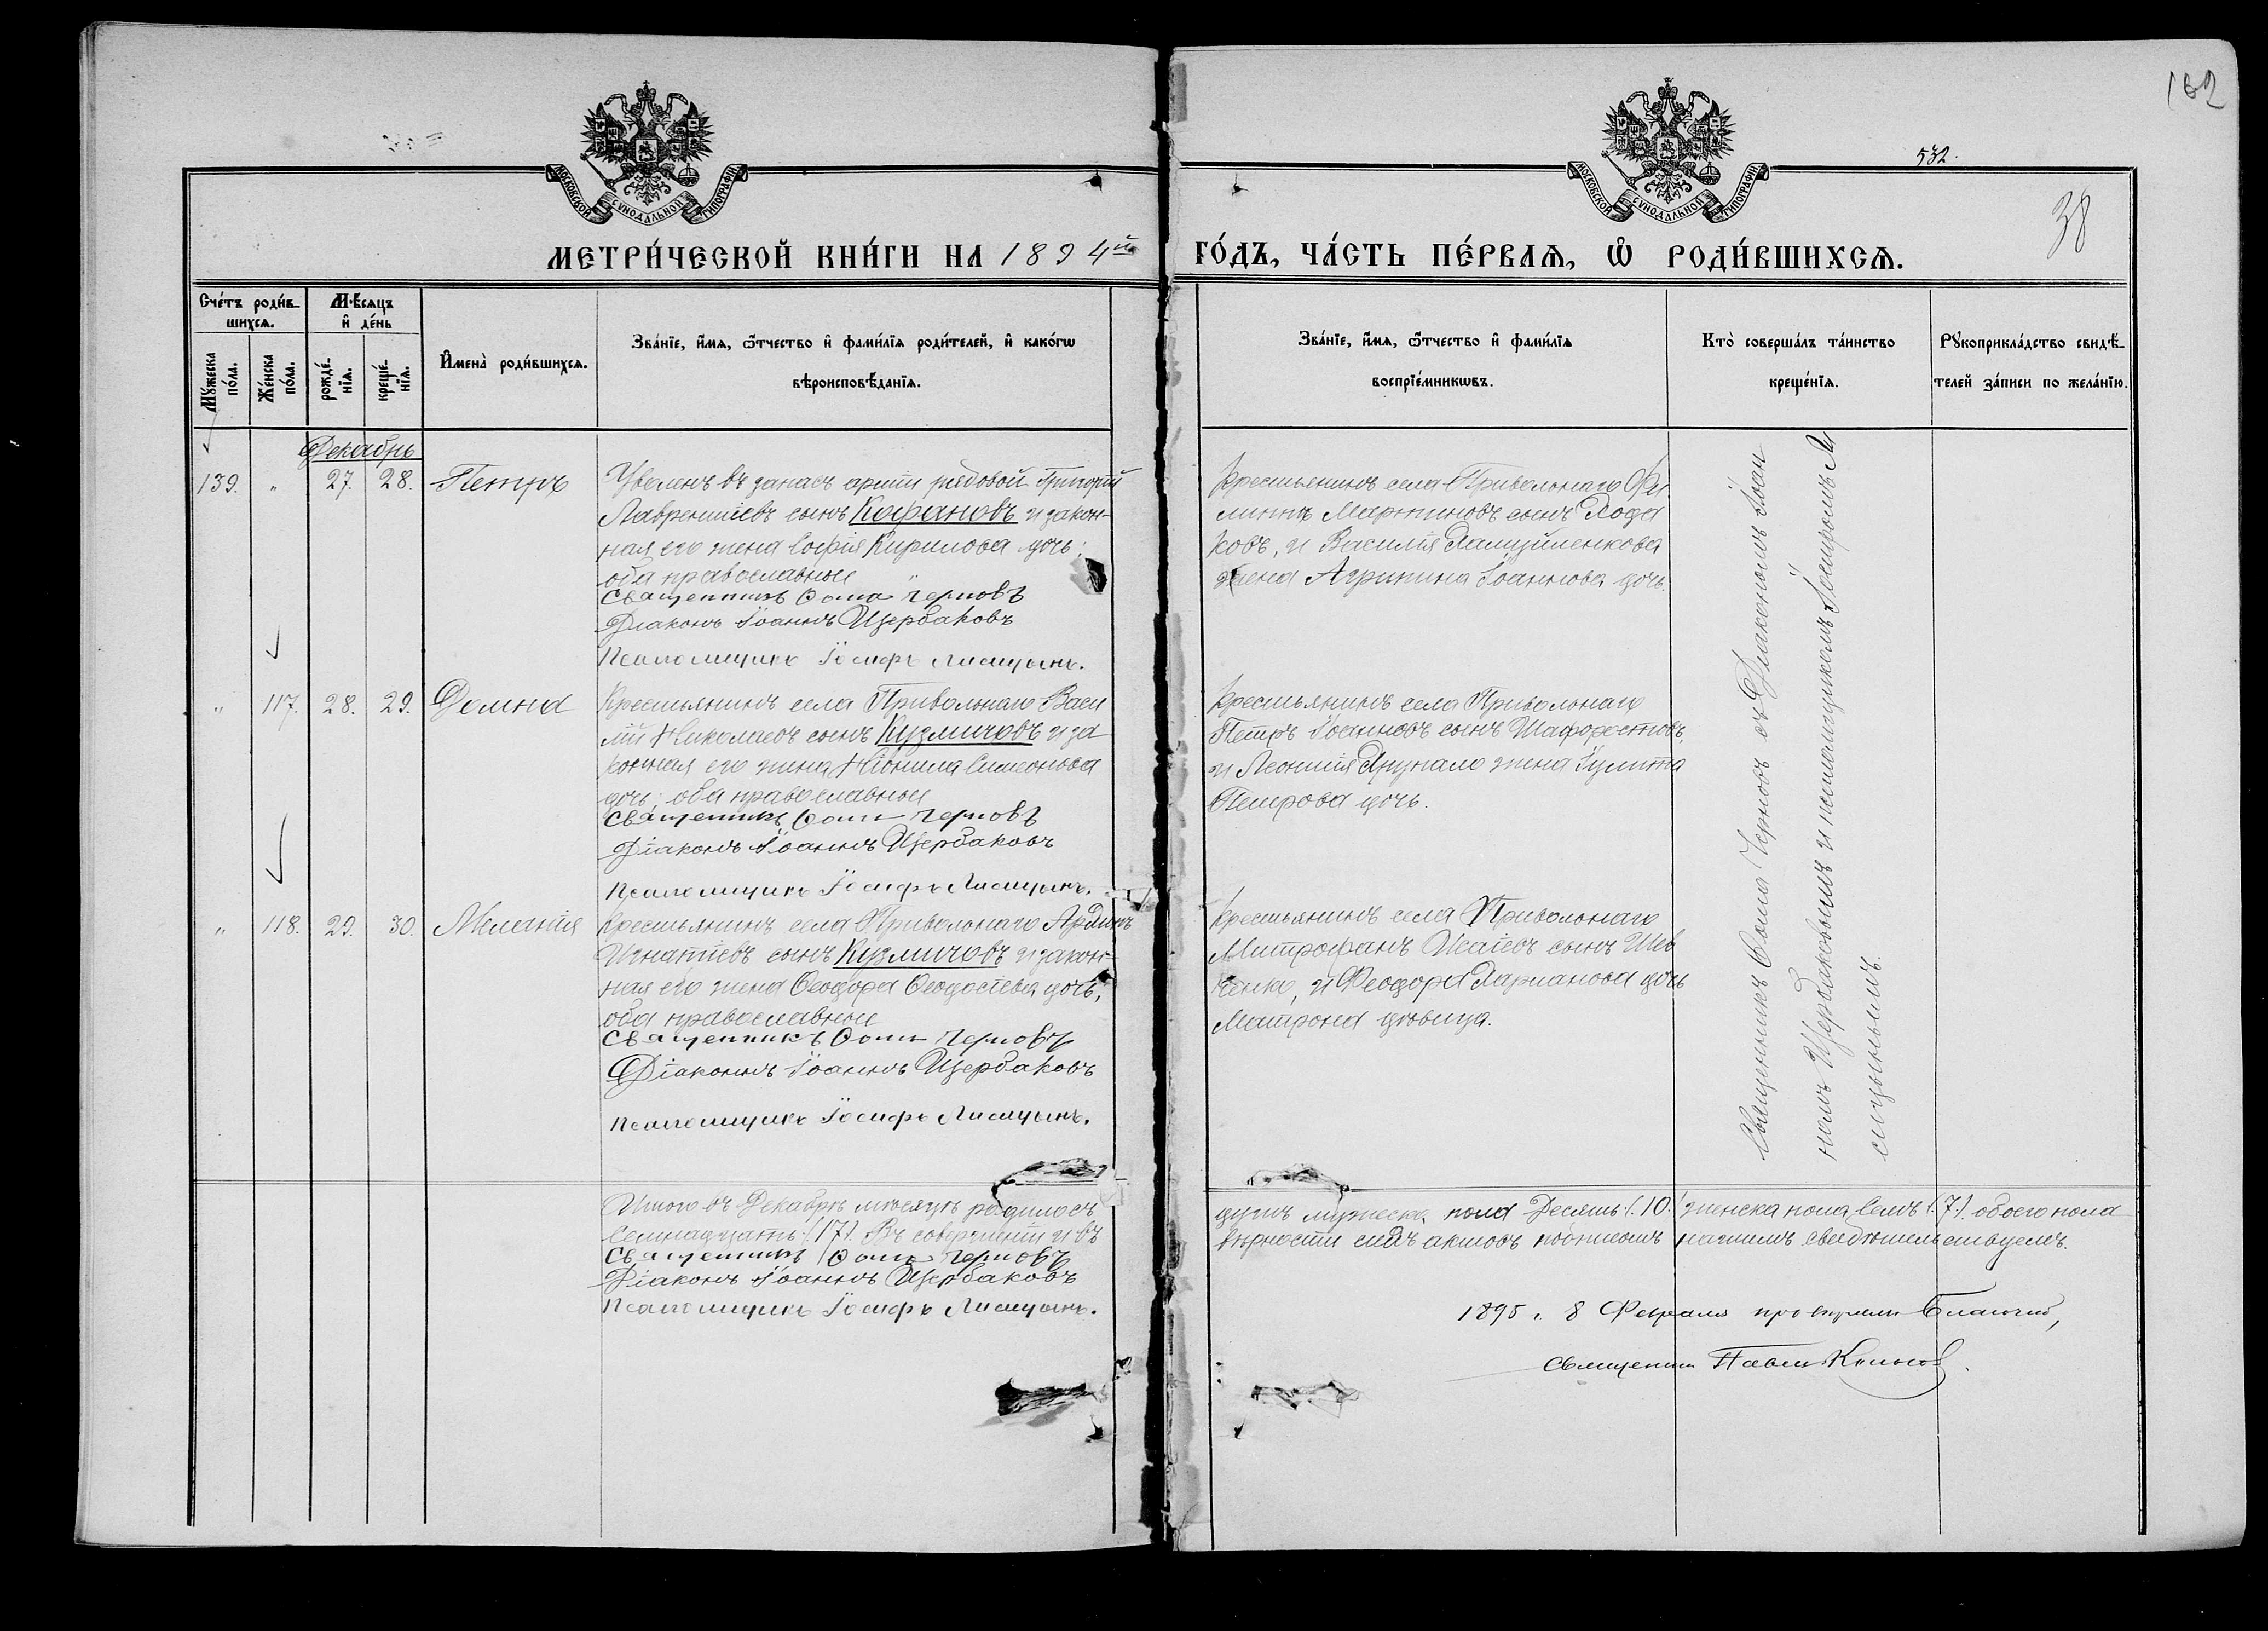 162
532.
38
МОСКОВСКОЙ СѴНОДАЛЬНОЙ ТИПОГРАФІИ
МОСКОВСКОЙ СѴНОДАЛЬНОЙ ТИПОГРАФІИ
МЕТРИ́ЧЕСКОЙ КНИ́ГИ НА 1894й
ГО́ДЪ, ЧА́СТЬ ПЕ́РВАѦ, Ѽ РОДИ́ВШИХСѦ.
Сче́тъ роди́в-
шихсѧ.
Мꙋ́жеска по́ла.
Же́нска по́ла.
Мѣ́сѧцъ
и҆ де́нь
рожде́-
нїѧ.
креще́-
нїѧ.
И҆мена̀ роди́вшихсѧ.
Зва́нїе, и҆́мѧ, ѻ҆́тчество и҆ фами́лїѧ роди́телей, и҆ како́гѡ
вѣроисповѣ́данїѧ.
Зва́нїе, и҆́мѧ, ѻ҆́тчество и҆ фами́лїѧ
воспрїе́мникѡвъ.
Кто̀ соверша́лъ та́инство
креще́нїѧ.
Рꙋкоприкла́дство свидѣ́-
телей за́писи по жела́нїю.
Декабрь
139. " 27. 28. Петръ
Уволенъ въ запасъ арміи рядовой Григорій
Лаврентіевъ сынъ Кофановъ и закон-
ная его жена Софія Кирилова дочь;
оба православные
Священникъ Ѳома Черновъ
Діаконъ Іоаннъ Щербаковъ
Псаломщикъ Іосифъ Лисицынъ.
Крестьянинъ села Привольнаго Фи
липпъ Мартиновъ сынъ
ковъ, и Василія
жена Агрипина Іоаннова дочь.
" 117. 28. 29. Домна
Крестьянинъ села Привольнаго Васи
лій Николаевъ сынъ Кузмичовъ и за
конная его жена Неонила Симеонова
дочь; оба православные
Священникъ Ѳома Черновъ
Діаконъ Іоаннъ Щербаковъ
Псаломщикъ Іосифъ Лисицынъ.
Крестьянинъ села Привольнаго
Петръ Іоанновъ сынъ Шафоростовъ,
и Леонтія жена Іулита
Петрова дочь.
" 118. 29. 30. Меланія
Крестьянинъ села Привольнаго
Игнатіевъ сынъ Кузмичовъ и закон-
ная его жена Ѳеодора Ѳеодосіева дочь;
оба православные
Священникъ Ѳома Черновъ
Діаконъ Іоаннъ Щербаковъ
Псаломщикъ Іосифъ Лисицынъ.
Крестьянинъ села Привольнаго
Митрофанъ Исаіевъ сынъ Шев
ченко, и Феодора дочь
Матрона дѣвица.
Священникъ Ѳома Черновъ съ Діакономъ Іоан
номъ Щербаковымъ и псаломщикомъ Іосифомъ Ли
сицынымъ.
Итого въ Декабрѣ мѣсяцѣ родилось
Семнадцать (17). Въ совершеніи и въ
Священникъ Ѳома Черновъ
Діаконъ Іоаннъ Щербаковъ
Псаломщикъ Іосифъ Лисицынъ.
мужеска пола Десять (10) женска пола Семь (7) обоего пола
вѣрности сихъ актовъ подписомъ нашимъ свидѣтельствуемъ.
1895 г. 8 Февраля Благочин,
Священникъ Павелъ